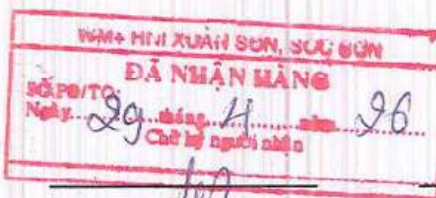 WM+ HNI XUÂN SƠN, SÓC SƠN
ĐÃ NHẬN HÀNG
SỐ PO/TO:
Ngày 29 tháng 4 năm 26
Chữ ký người nhận